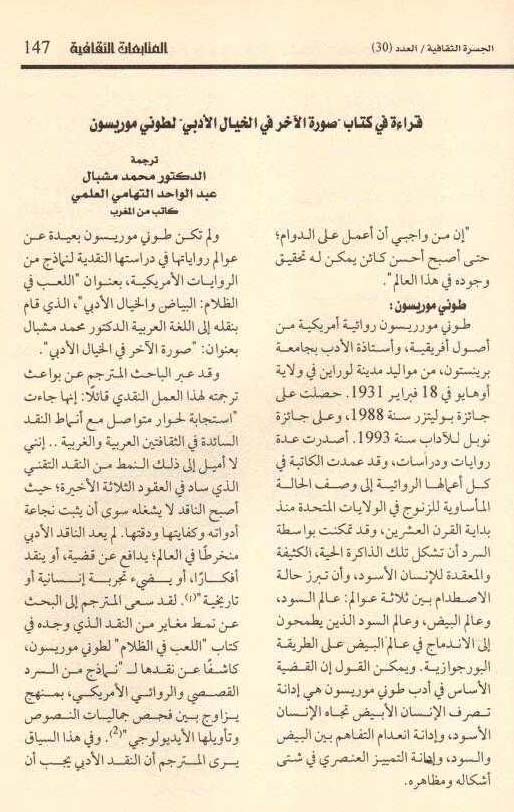 الجسرة الثقافية / العدد (30)
المتابعات الثقافية 147
قراءة في كتاب "صورة الآخر في الخيال الأدبي" لطوني موريسون
ترجمة
الدكتور محمد مشبال
عبد الواحد التهامي العلمي
كاتب من المغرب
"إن من واجبي أن أعمل على الدوام؛
حتى أصبح أحسن كائن يمكن له تحقيق
وجوده في هذا العالم".
طوني موريسون:
طوني مورريسون روائية أمريكية من
أصول أفريقية، وأستاذة الأدب بجامعة
برينستون، من مواليد مدينة لوراين في ولاية
أوهايو في 18 فبراير 1931. حصلت على
جائزة بوليتزر سنة 1988، وعلى جائزة
نوبل للآداب سنة 1993. أصدرت عدة
روايات ودراسات، وقد عمدت الكاتبة في
كل أعمالها الروائية إلى وصف الحالة
المأساوية للزنوج في الولايات المتحدة منذ
بداية القرن العشرين، وقد تمكنت بواسطة
السرد أن تشكل تلك الذاكرة الحية، الكثيفة
والمعقدة للإنسان الأسود، وأن تبرز حالة
الاصطدام بين ثلاثة عوالم: عالم السود،
وعالم البيض، وعالم السود الذين يطمحون
إلى الاندماج في عالم البيض على الطريقة
البورجوازية. ويمكن القول إن القضية
الأساس في أدب طوني موريسون هي إدانة
تصرف الإنسان الأبيض تجاه الإنسان
الأسود، وإدانة انعدام التفاهم بين البيض
والسود، وإدانة التمييز العنصري في شتى
أشكاله ومظاهره.
ولم تكن طوني موريسون بعيدة عن
عوالم رواياتها في دراستها النقدية لنماذج من
الروايات الأمريكية، بعنوان "اللعب في
الظلام: البياض والخيال الأدبي"، الذي قام
بنقله إلى اللغة العربية الدكتور محمد مشبال
بعنوان: "صورة الآخر في الخيال الأدبي".
وقد عبر الباحث المترجم عن بواعث
ترجمته لهذا العمل النقدي قائلًا: إنها جاءت
"استجابة لحوار متواصل مع أنماط النقد
السائدة في الثقافتين العربية والغربية .. إنني
لا أميل إلى ذلك النمط من النقد التقني
الذي ساد في العقود الثلاثة الأخيرة؛ حيث
أصبح الناقد لا يشغله سوى أن يثبت نجاعة
أدواته وكفايتها ودقتها. لم يعد الناقد الأدبي
منخرطًا في العالم؛ يدافع عن قضية، أو ينقد
أفكارًا، أو يضيء تجربة إنسانية أو
تاريخية"(1). لقد سعى المترجم إلى البحث
عن نمط مغاير من النقد الذي وجده في
كتاب "اللعب في الظلام" لطوني موريسون،
كاشفًا عن نقدها لـ "نماذج من السرد
القصصي والروائي الأمريكي، بمنهج
يزاوج بين فحص جماليات النصوص
وتأويلها الأيديولوجي"(2). وفي هذا السياق
يرى المترجم أن النقد الأدبي يجب أن